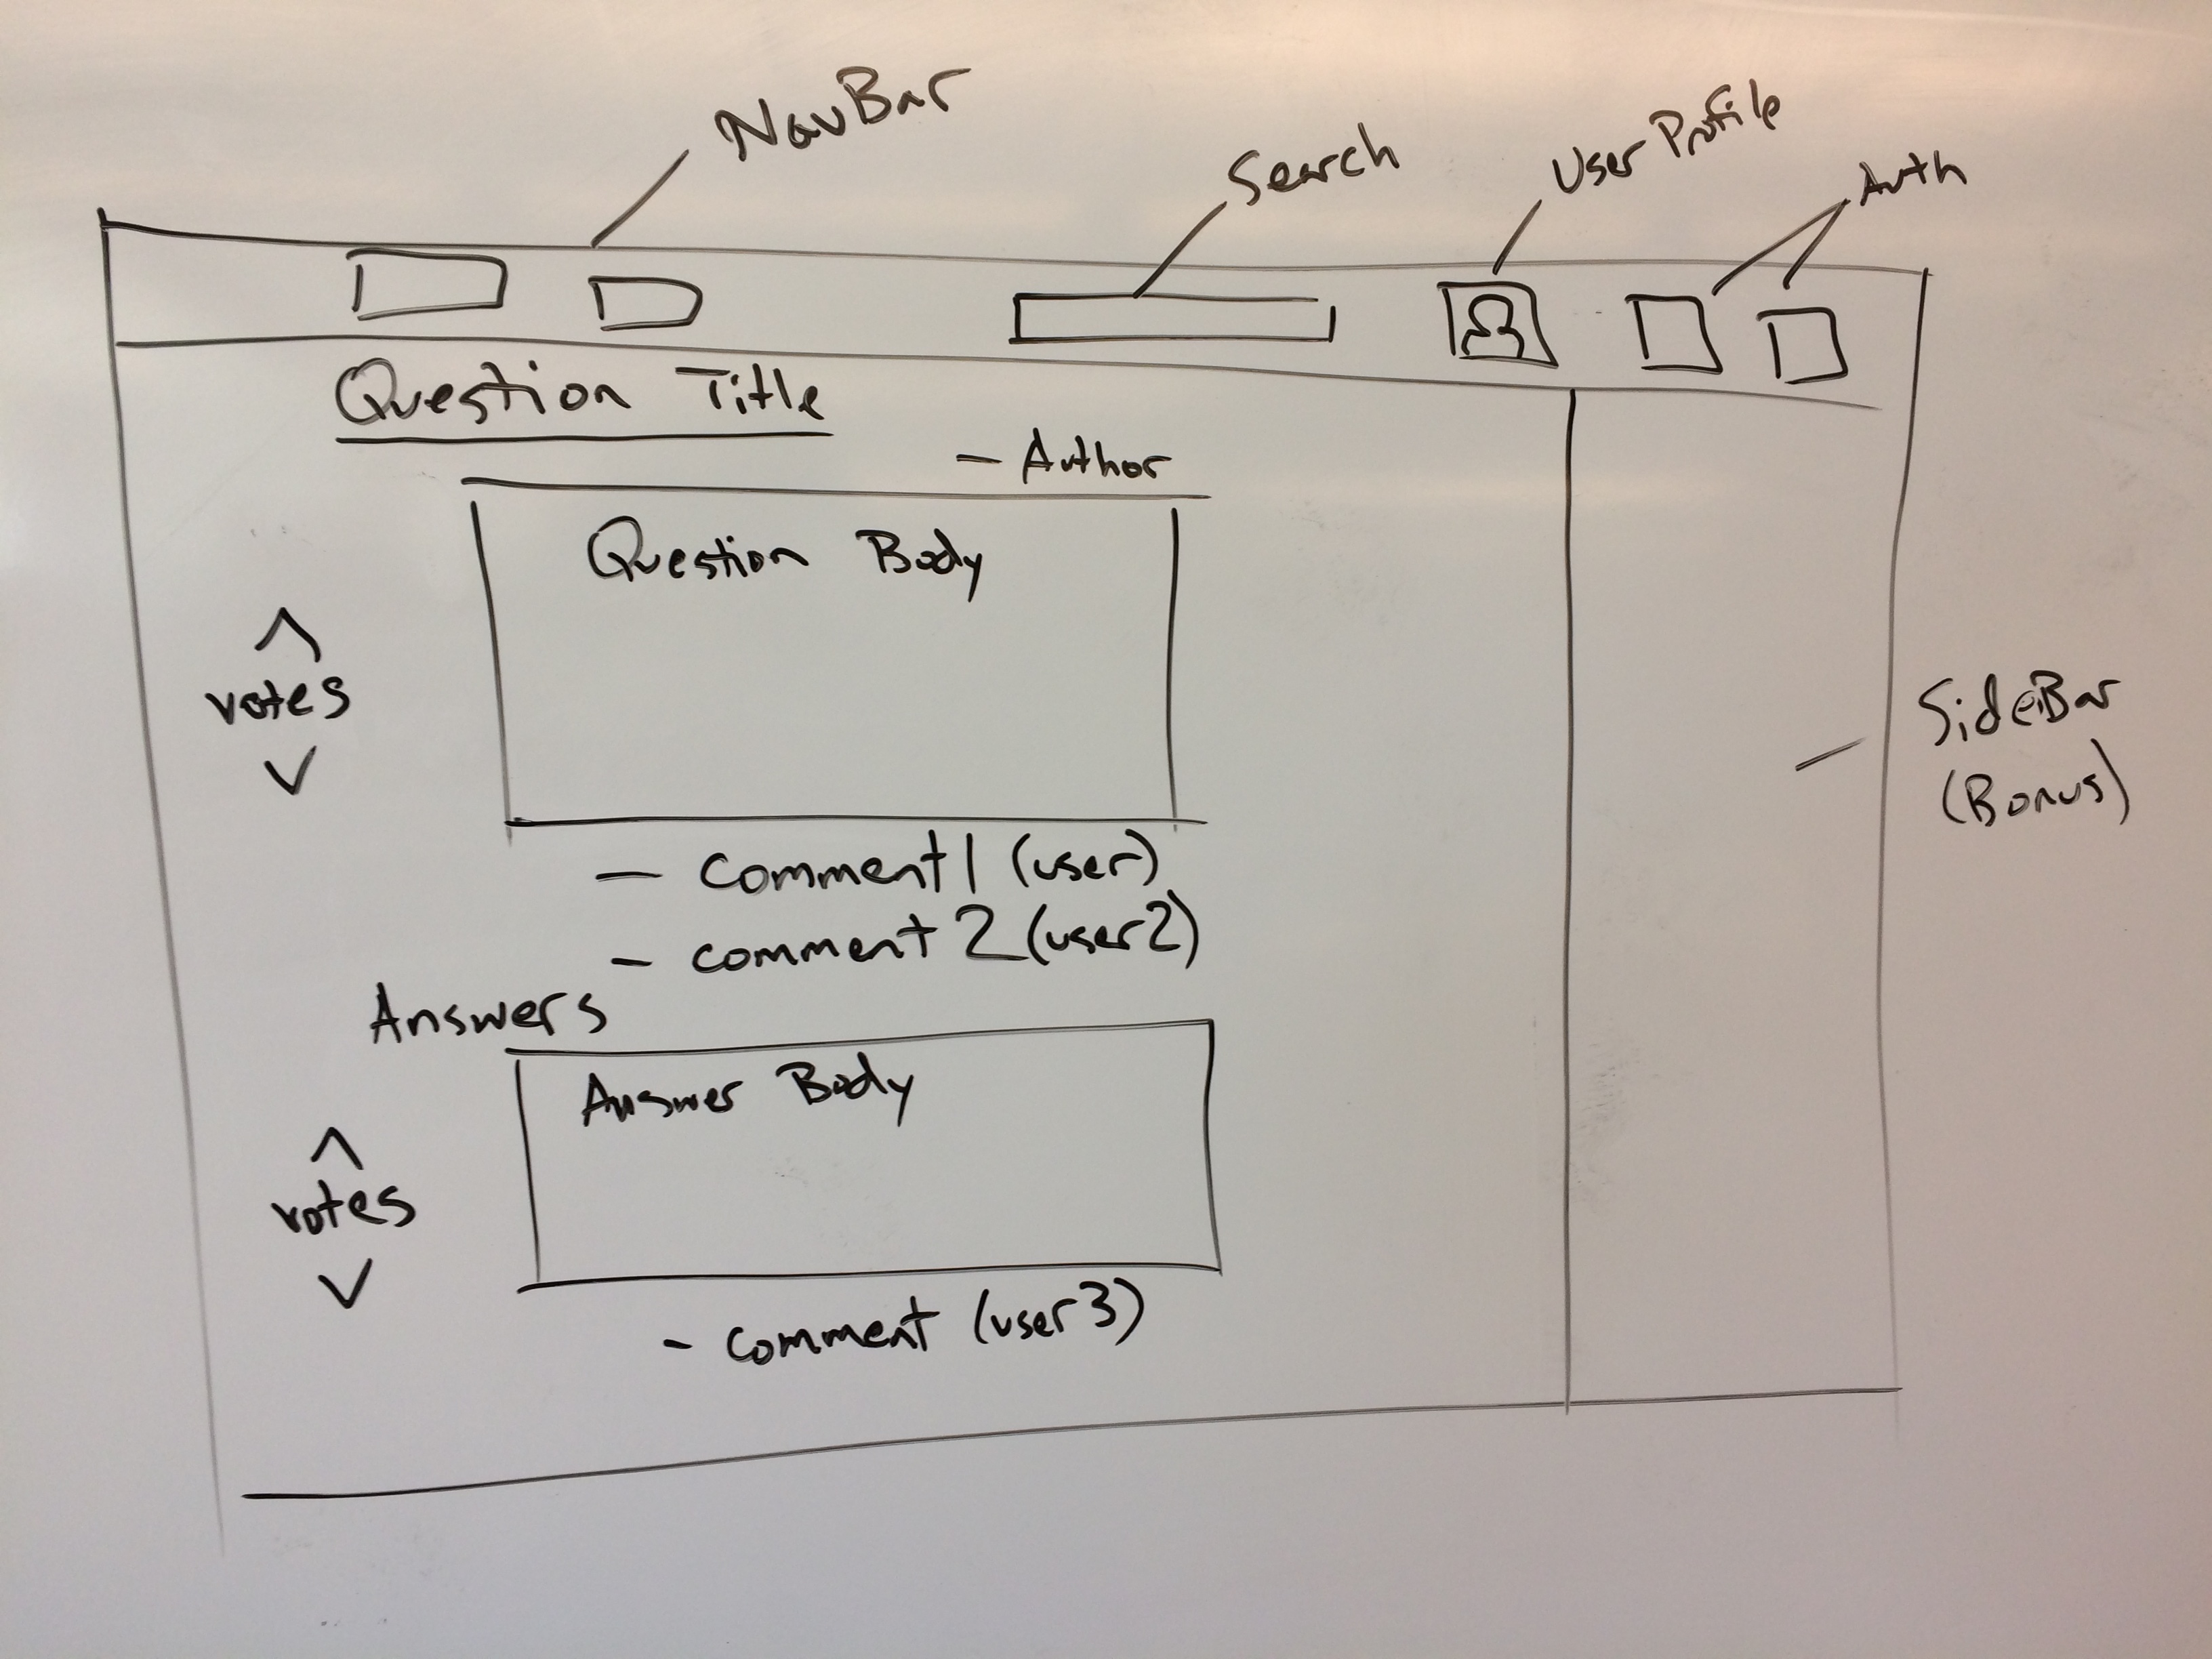 NavBar
Search
User Profile
Auth
Question Title
- Author
Question Body
^
votes
v
SideBar
(Bonus)
- comment 1 (user)
- comment 2 (user2)
Answers
Answer Body
^
votes
v
- comment (user3)